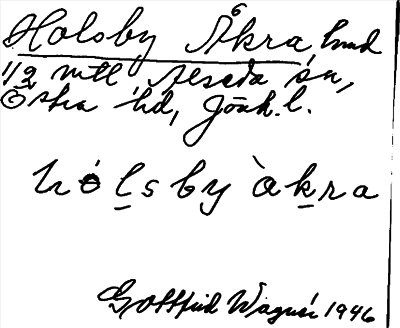 Holsby Åkra, hmd
1/2 mtl Alseda sn,
Östra hd, Jönk. l.
hólsby àkra
Gottfrid Wagnér 1946